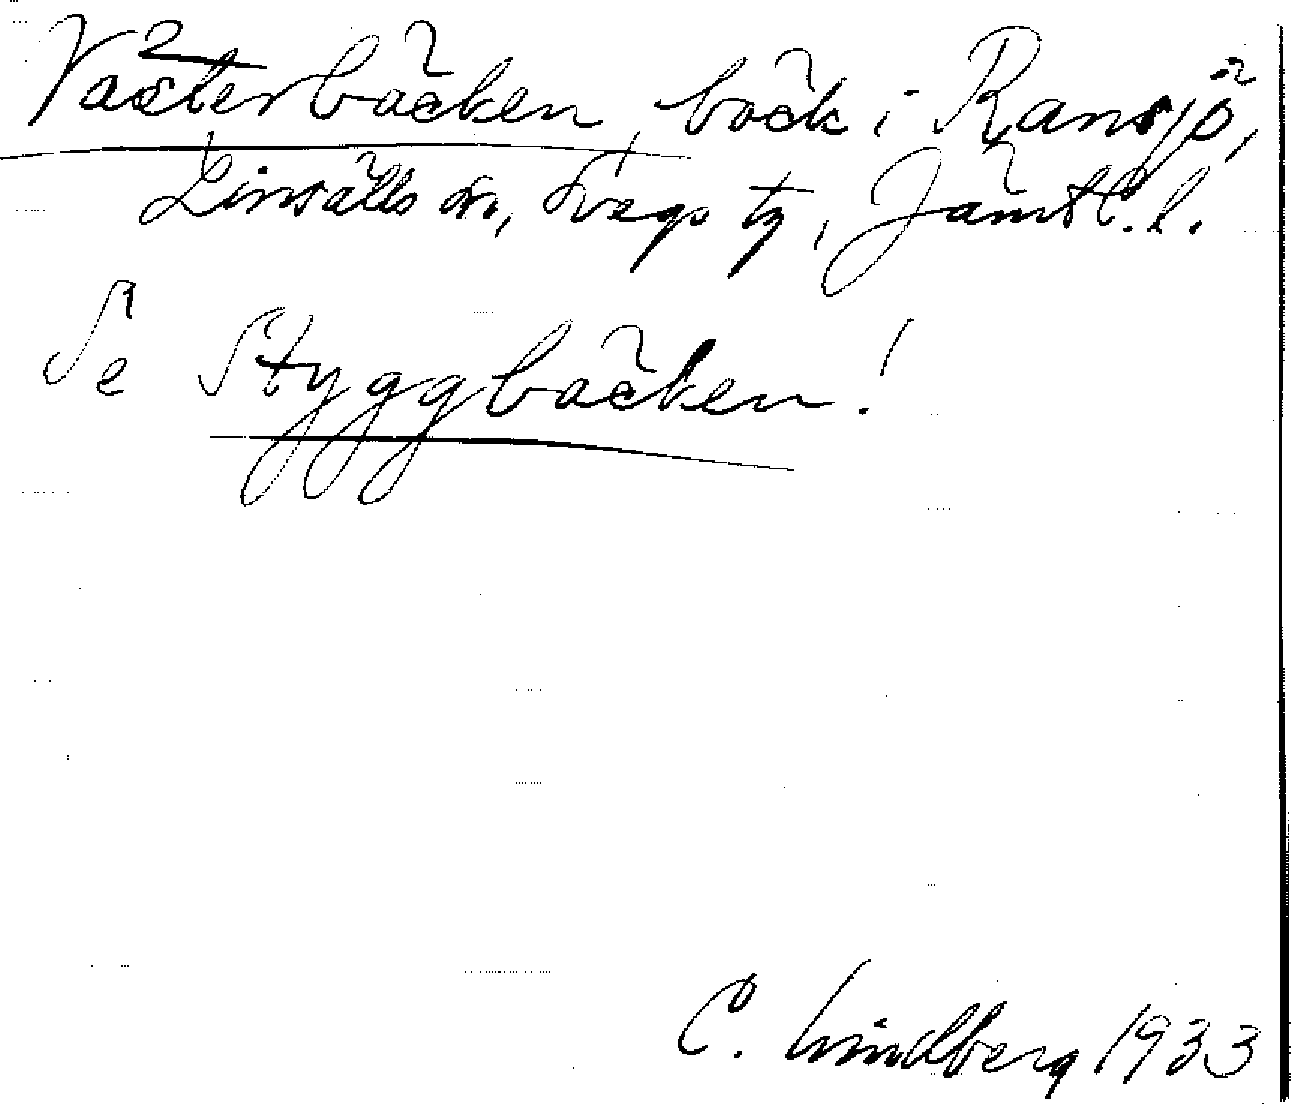 Västerbäcken, bäck i Ransjö,
Linsälls sn, Svegs tg, Jämtl. l.
Se Styggbäcken!
C. Lindberg 1933